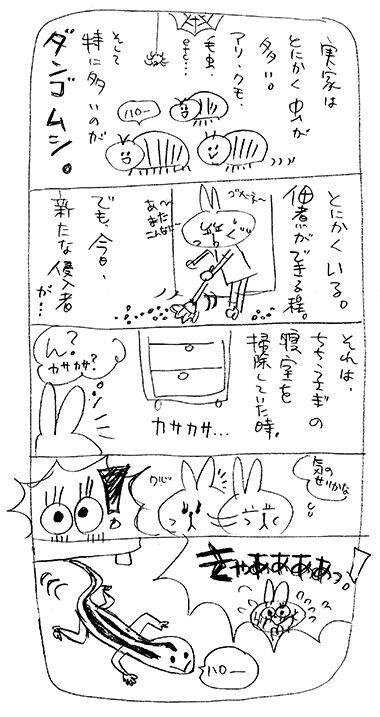 実家は
とにかく虫が
多い。
アリ、クモ、
毛虫、
etc…
そして
特に多いのが
ダンゴムシ。
ハロー
とにかくいる。
佃煮ができる程。
でも、今日、
新たな侵入者
が…
あ〜
また
こんなに〜
それは、
ちちうさぎの
寝室を
掃除していた時。
カサカサ…
ん?
カサカサ?
気の
せいかな
クルッ
!
きゃあああああっ!
ハロー